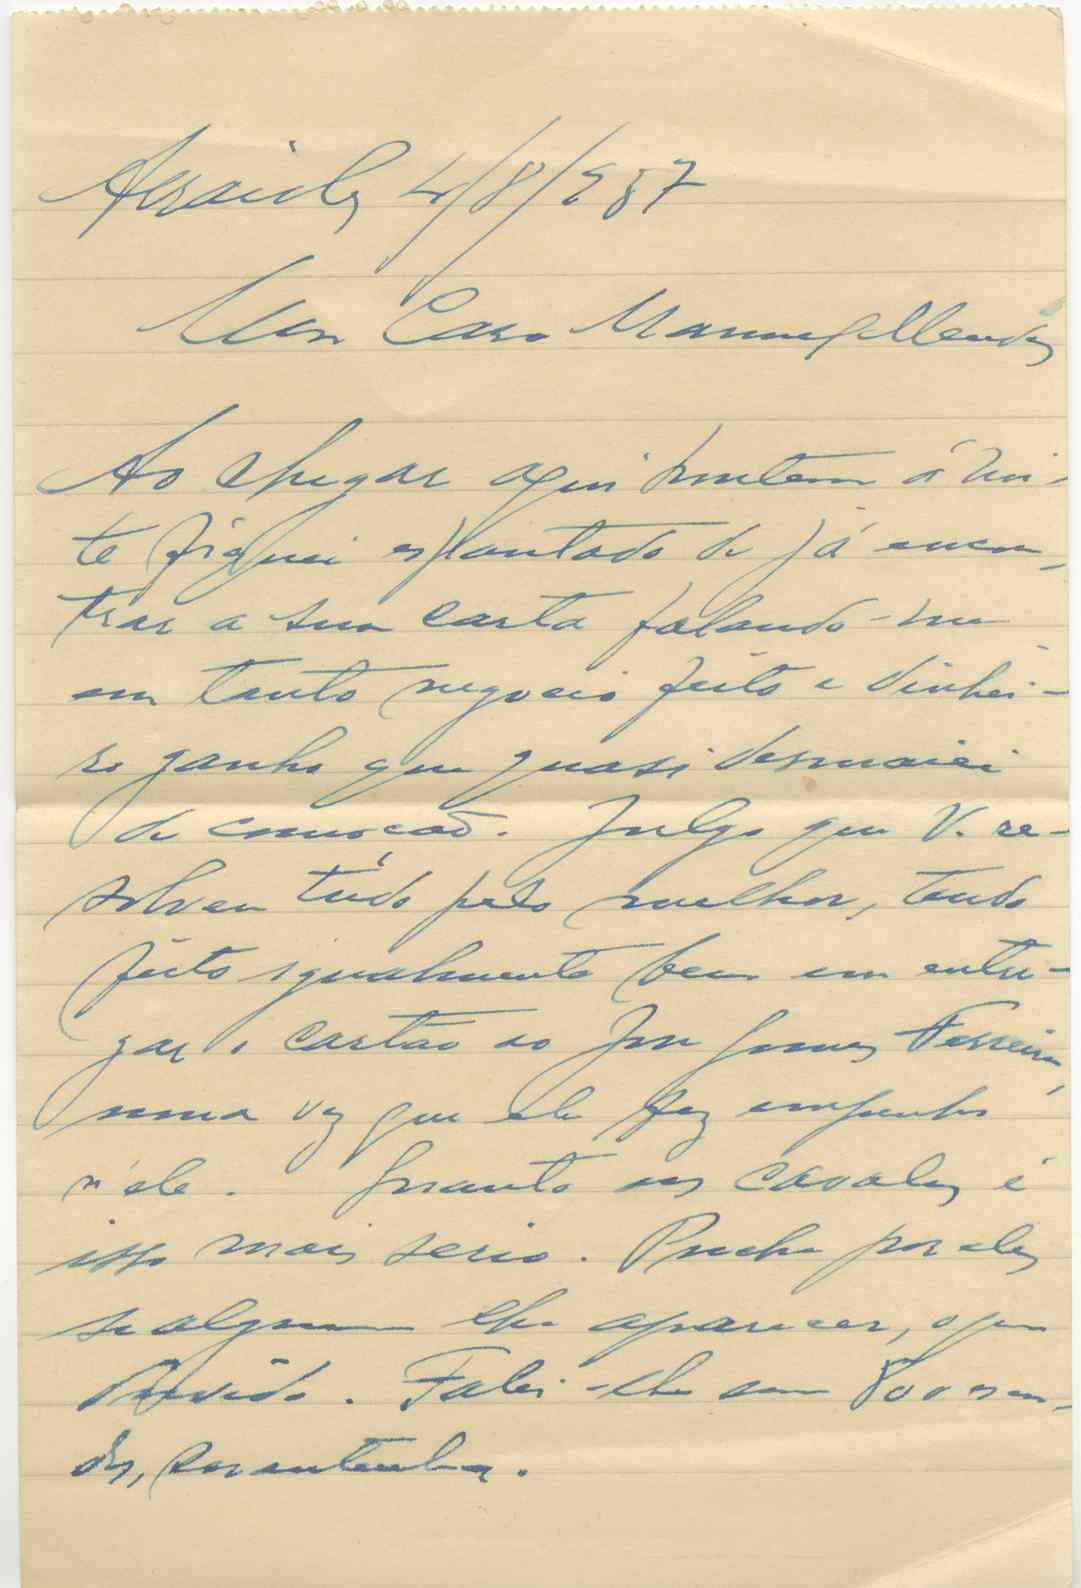 Arraiolos 4/8/957
Meu Caro Manuel Mendes
Ao chegar aqui hontem á noi-
te fiquei espantado de já encon-
trar a sua carta falando-me
em tanto negocio feito e dinhei-
ro ganho que quasi desmaiei
de comoção. Julgo que V. re-
solveu túdo pelo melhor, tendo
feito igualmente bem em entre-
gar o cartão ao José Gomes Ferreira,
uma vez que ele faz empenho
n'ele. Quanto aos cavalos é
isso mais serio. Puche por eles
se algum lhe aparecer, o que
duvido. Falei-lhe em 800 escu-
dos,